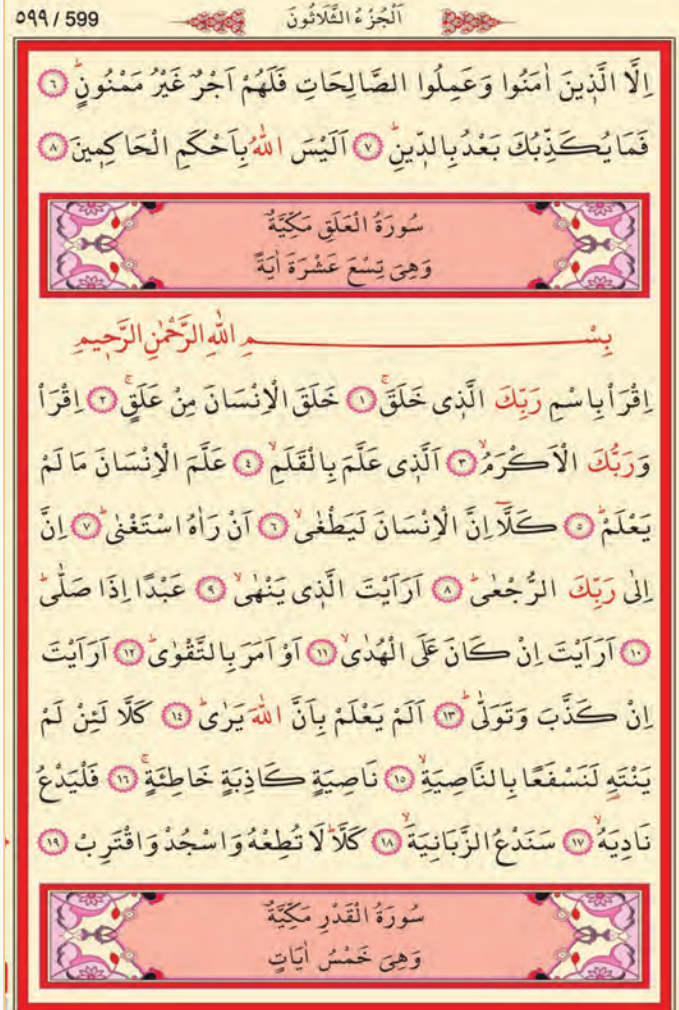 ٥٩٩ / 599 اَلْجُزْءُ الثَّلَاثُونَ
اِلَّا الَّذ۪ينَ اٰمَنُوا وَعَمِلُوا الصَّالِحَاتِ فَلَهُمْ اَجْرٌ غَيْرُ مَمْنُونٍۜ ٦
فَمَا يُكَذِّبُكَ بَعْدُ بِالدّ۪ينِۜ ٧ اَلَيْسَ اللّٰهُ بِاَحْكَمِ الْحَاكِم۪ينَ ٨
سُورَةُ الْعَلَقِ مَكِّيَّةٌ
وَهِىَ تِسْعَ عَشْرَةَ اٰيَةً
بِسْمِ اللّٰهِ الرَّحْمٰنِ الرَّح۪يمِ
اِقْرَأْ بِاسْمِ رَبِّكَ الَّذ۪ى خَلَقَۚ ١ خَلَقَ الْاِنْسَانَ مِنْ عَلَقٍۚ ٢ اِقْرَأْ
وَرَبُّكَ الْاَكْرَمُۙ ٣ اَلَّذ۪ى عَلَّمَ بِالْقَلَمِۙ ٤ عَلَّمَ الْاِنْسَانَ مَا لَمْ
يَعْلَمْۜ ٥ كَلَّٓا اِنَّ الْاِنْسَانَ لَيَطْغٰىۙ ٦ اَنْ رَاٰهُ اسْتَغْنٰىۜ ٧ اِنَّ
اِلٰى رَبِّكَ الرُّجْعٰىۜ ٨ اَرَاَيْتَ الَّذ۪ى يَنْهٰىۙ ٩ عَبْدًا اِذَا صَلّٰىۜ
١٠ اَرَاَيْتَ اِنْ كَانَ عَلَى الْهُدٰىۙ ١١ اَوْ اَمَرَ بِالتَّقْوٰىۜ ١٢ اَرَاَيْتَ
اِنْ كَذَّبَ وَتَوَلّٰىۜ ١٣ اَلَمْ يَعْلَمْ بِاَنَّ اللّٰهَ يَرٰىۜ ١٤ كَلَّا لَئِنْ لَمْ
يَنْتَهِ لَنَسْفَعًا بِالنَّاصِيَةِۙ ١٥ نَاصِيَةٍ كَاذِبَةٍ خَاطِئَةٍۚ ١٦ فَلْيَدْعُ
نَادِيَهُۙ ١٧ سَنَدْعُ الزَّبَانِيَةَۙ ١٨ كَلَّاۜ لَا تُطِعْهُ وَاسْجُدْ وَاقْتَرِبْ ١٩
سُورَةُ الْقَدْرِ مَكِّيَّةٌ
وَهِىَ خَمْسُ اٰيَاتٍ